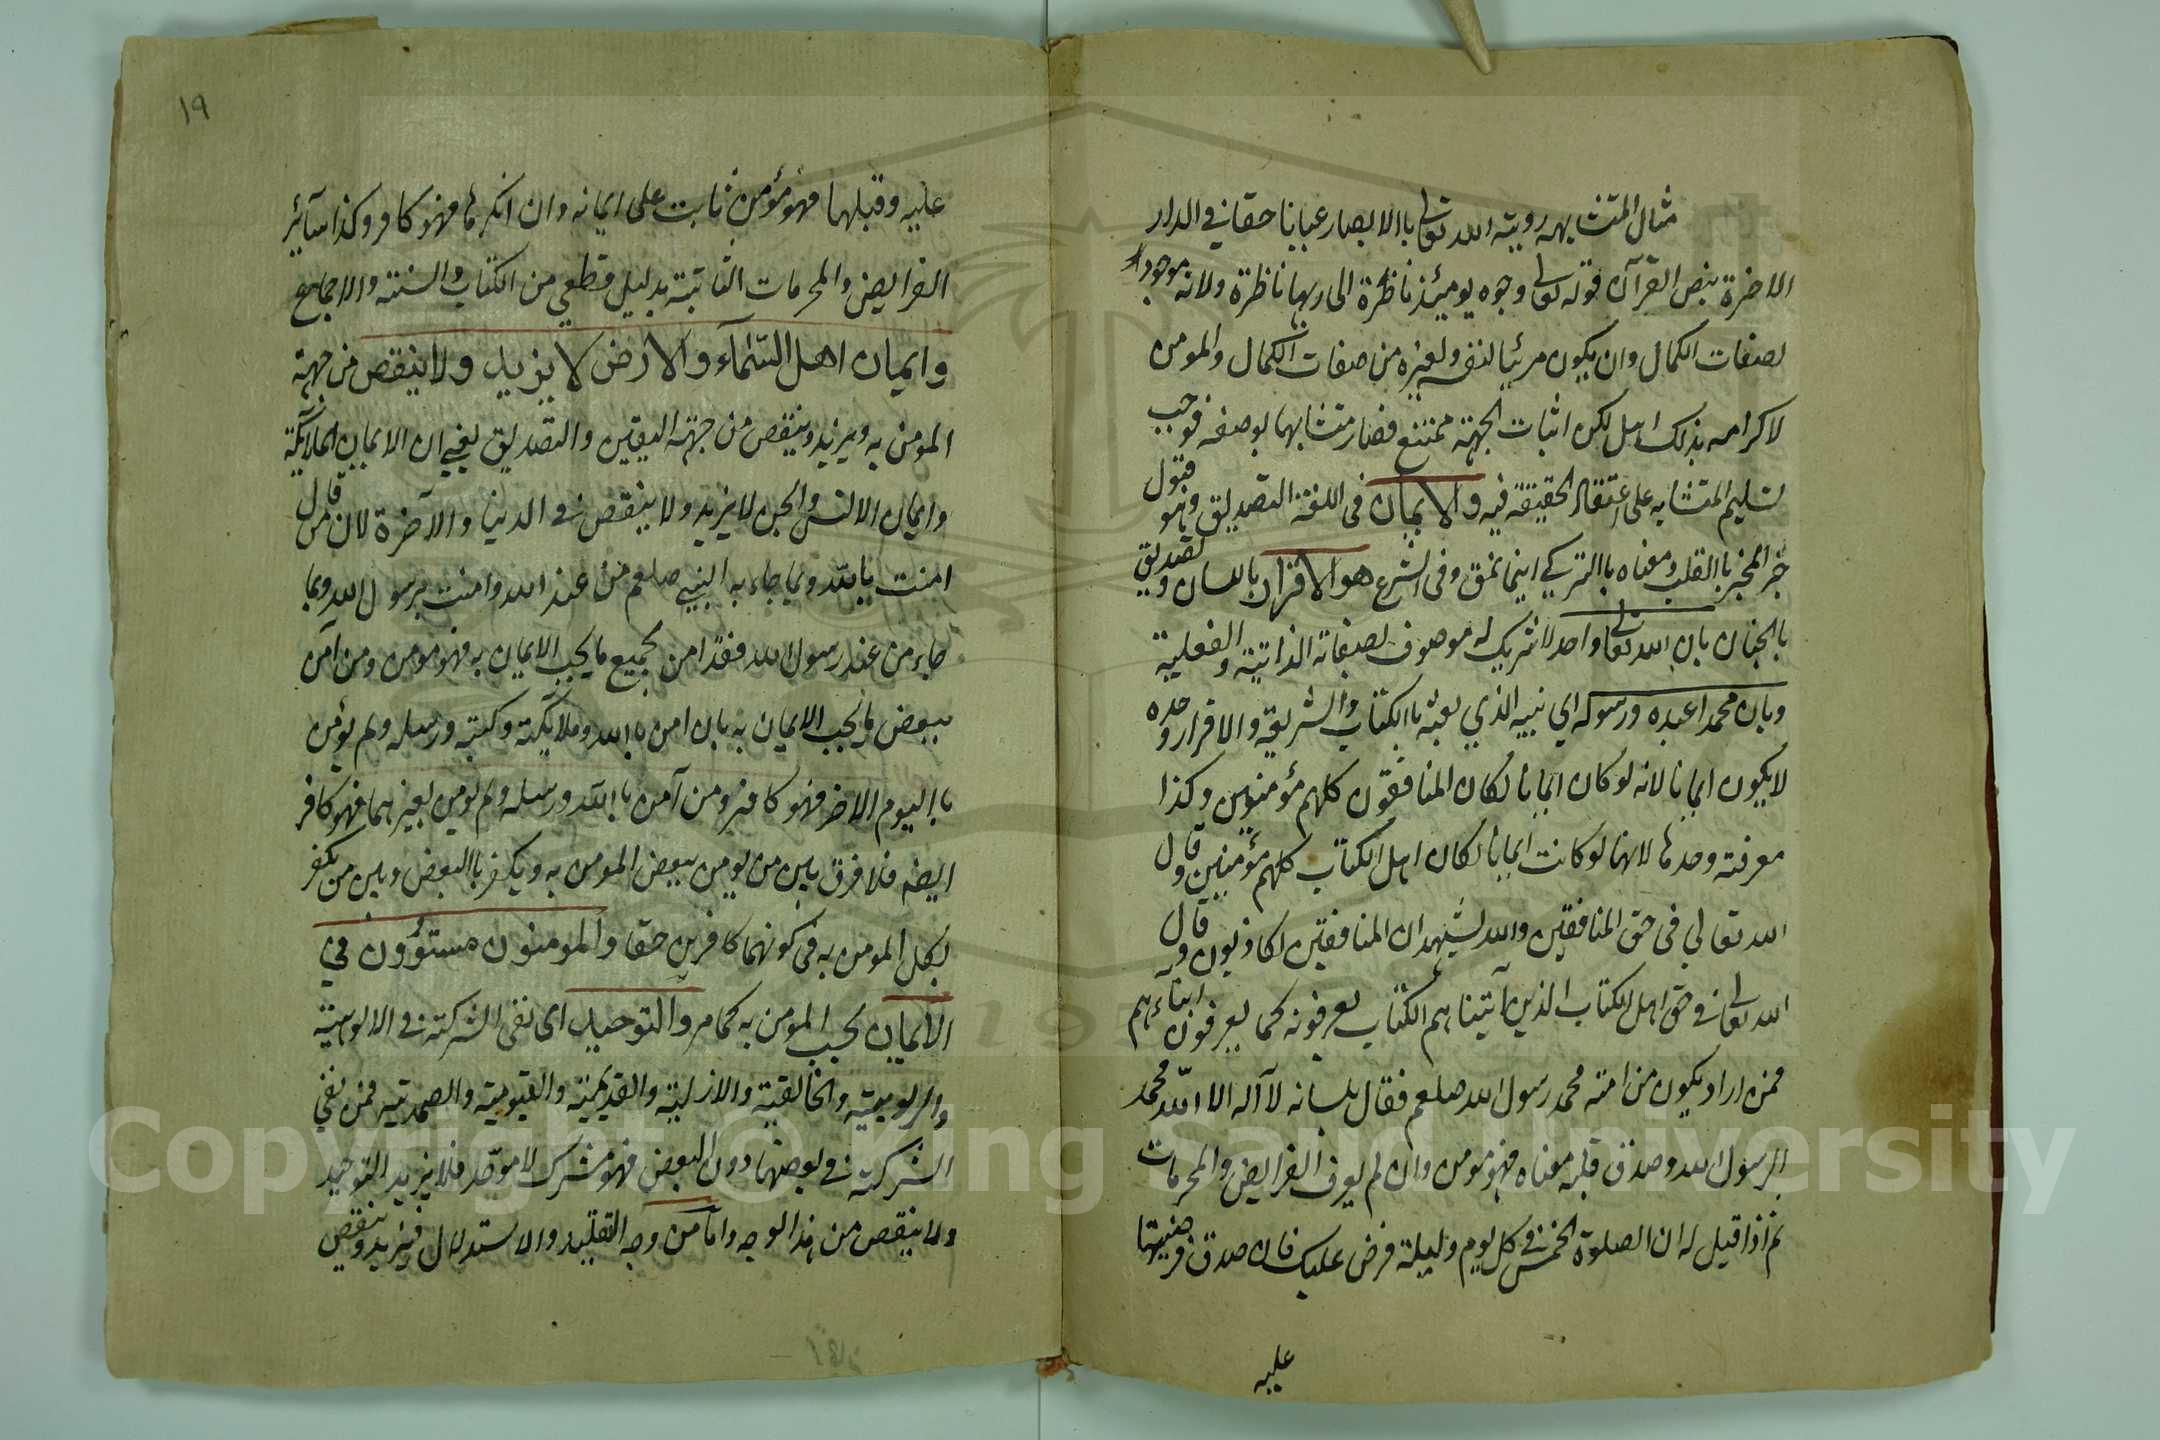 مثال المتشابهه روية الله تعالى باالابصار عيانا حقا في الدار
الاخرة بنص القرآن قوله تعالى وجوه يومئذ ناظرة الى ربها ناظرة ولانه موجود
بصفات الكمال وان يكون مرئيا لنفسه ولغيره من صفات الكمال والمومن
لاكرامه بذلك اهل لكن اثبات الجهة ممتنع فصار متشابهما بوصفه فوجب
تسليم المتشابه على اعتقاد الحقيقة فيه والايمان في اللغة التصديق وهو قبول
خبر المخبر باالقلب ومعناه باالتركي وفي الشرع هو الاقرار باللسان وتصديق
باالجنان بان الله تعالى واحد لا شريك له موصوف بصفاته الذاتية والفعلية
وبان محمدا عبده ورسوله اي نبيه الذي بعثه باالكتاب والشريعة والاقرار وحده
لا يكون ايمانا لانه لو كان ايمانا لكان المنافقون كلهم مؤمنين وكذا
معرفته وحدها لانها لو كانت ايمانا لكان اهل الكتاب كلهم مؤمنين وقال
الله تعالي في حق المنافقين والله يشهد ان المنافقين لكاذبون وقال
الله تعالى في حق اهل الكتاب الذين آتيناهم الكتاب يعرفونه كما يعرفون ابناءهم
فمن اراد يكون من امة محمد رسول الله صلعم فقال بلسانه لا آله الا الله محمد
الرسول الله وصدق قلبه معناه فهو مومن وان لم يعرف الفرايض والمحرمات
ثم اذا قيل له ان الصلوة الخمس في كل يوم وليلة فرض عليك فان صدق فرضيتها
عليه
١٩
عليه وقبلها فهو مؤمن ثابت على ايمانه وان انكرها فهو كافر وكذا سآئر
الفرايض والمحرمات الثابتة بدليل قطعي من الكتاب والسنة والاجماع
وايمان اهل السمآء والارض لا يزيد ولا ينقص من جهة
المومن به ويزيد وينقص من جهة اليقين والتصديق يعني ان الايمان الملائكة
وايمان الانس والجن لا يزيد ولا ينقص في الدنيا والآخرة لان من قال
امنت بالله وبما جاء به النبي صلعم من عند الله وامنت برسول الله وبما
جاء من عند رسول الله فقد امن بجميع ما يجب الايمان به فهو مومن ومن آمن
ببعض ما يجب الايمان به بان امن باالله وملائكته وكتبه ورسله ولم يؤمن
باليوم الاخر فهو كافر ومن آمن باالله ورسله ولم يومن بغيرهما فهو كافر
ايضا فلا فرق بين من يومن ببعض المومن به ويكفر باالبعض وبين من يكفر
بكل المومن به في كونهما كافرين حقا والمومنون مستؤون في
الايمان بحسب المومن به كما مر والتوحيد اى نفى الشركة في الالوهية
والربوبيته والخالقية والازلية والقديمية والقيومية والصمدتيه فمن نفي
الشركته في بعضها دون البعض فهو مشرك لا موحد فلا يزيد التوحيد
ولا ينقص من هذا الوجه واما من وجه التقليد والاستدلال فيزيد وينقص
Copyright © King Saud University